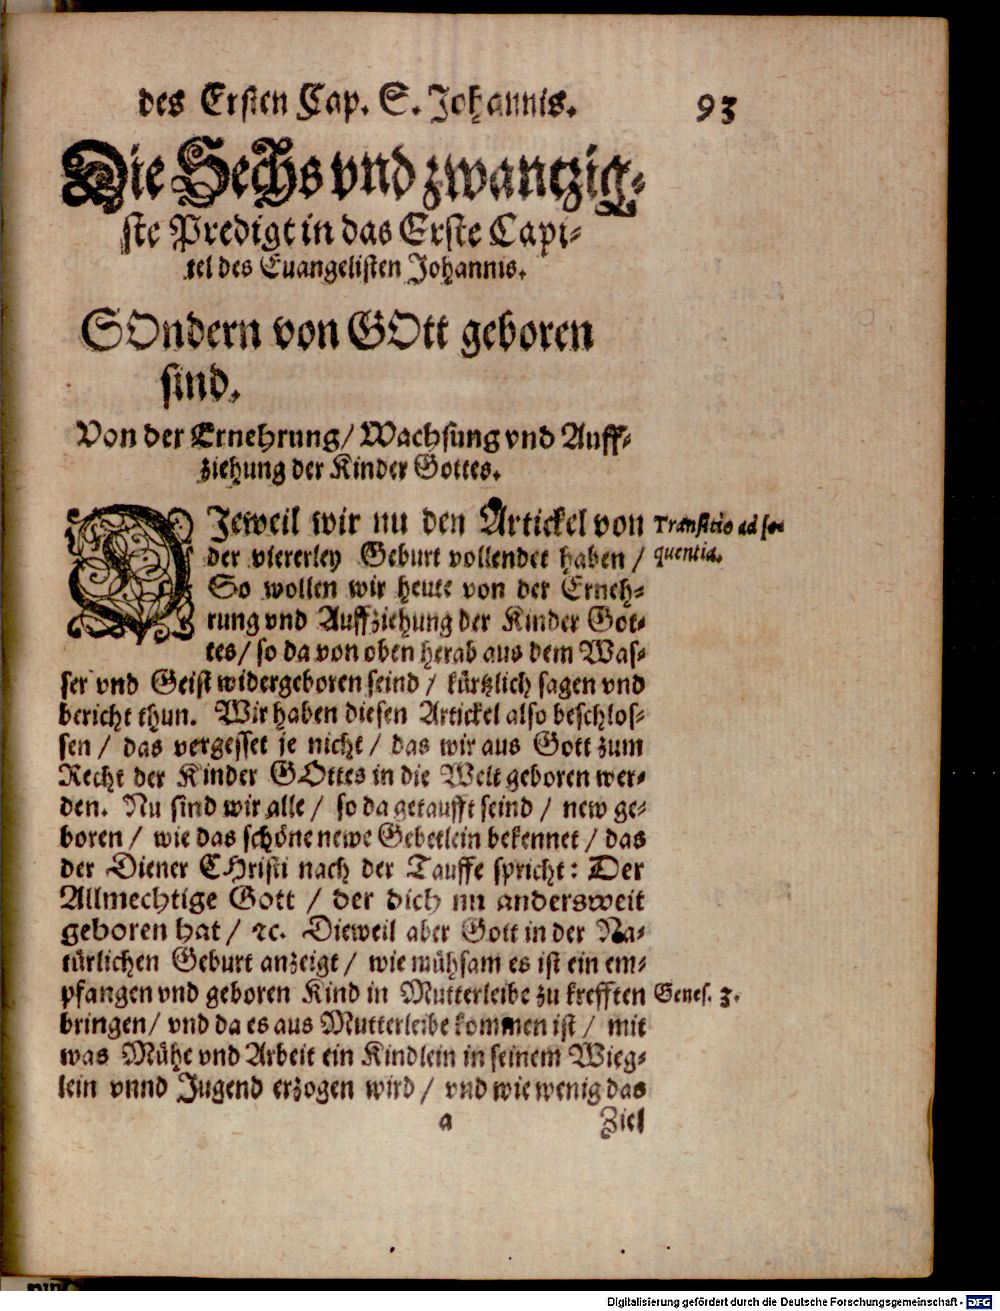 des Ersten Cap. S. Johannis. 93
Die Sechs vnd zwantzig-
ste Predigt in das Erste Capi-
tel des Euangelisten Johannis.
SOndern von GOtt geboren
sind.
Von der Ernehrung/ Wachsung vnd Auff-
ziehung der Kinder Gottes.
DJeweil wir nu den Artickel von
der viererley Geburt vollendet haben /
So wollen wir heute von der Erneh-
rung vnd Auffziehung der Kinder Got-
tes/ so da von oben herab aus dem Was-
ser vnd Geist widergeboren seind / kürtzlich sagen vnd
bericht thun. Wir haben diesen Artickel also beschlos-
sen / das vergesset je nicht / das wir aus Gott zum
Recht der Kinder GOttes in die Welt geboren wer-
den. Nu sind wir alle / so da getaufft seind / new ge-
boren / wie das schöne newe Gebetlein bekennet / das
der Diener CHristi nach der Tauffe spricht: Der
Allmechtige Gott / der dich nu andersweit
geboren hat / ꝛc. Dieweil aber Gott in der Na-
türlichen Geburt anzeigt / wie mühsam es ist ein em-
pfangen vnd geboren Kind in Mutterleibe zu krefften
bringen/ vnd da es aus Mutterleibe kommen ist / mit
was Mühe vnd Arbeit ein Kindlein in seinem Wieg-
lein vnnd Jugend erzogen wird / vnd wie wenig das
a Ziel
Transitio ad se-
quentia.
Genes. 3.
Digitalisierung gefördert durch die Deutsche Forschungsgemeinschaft - DFG